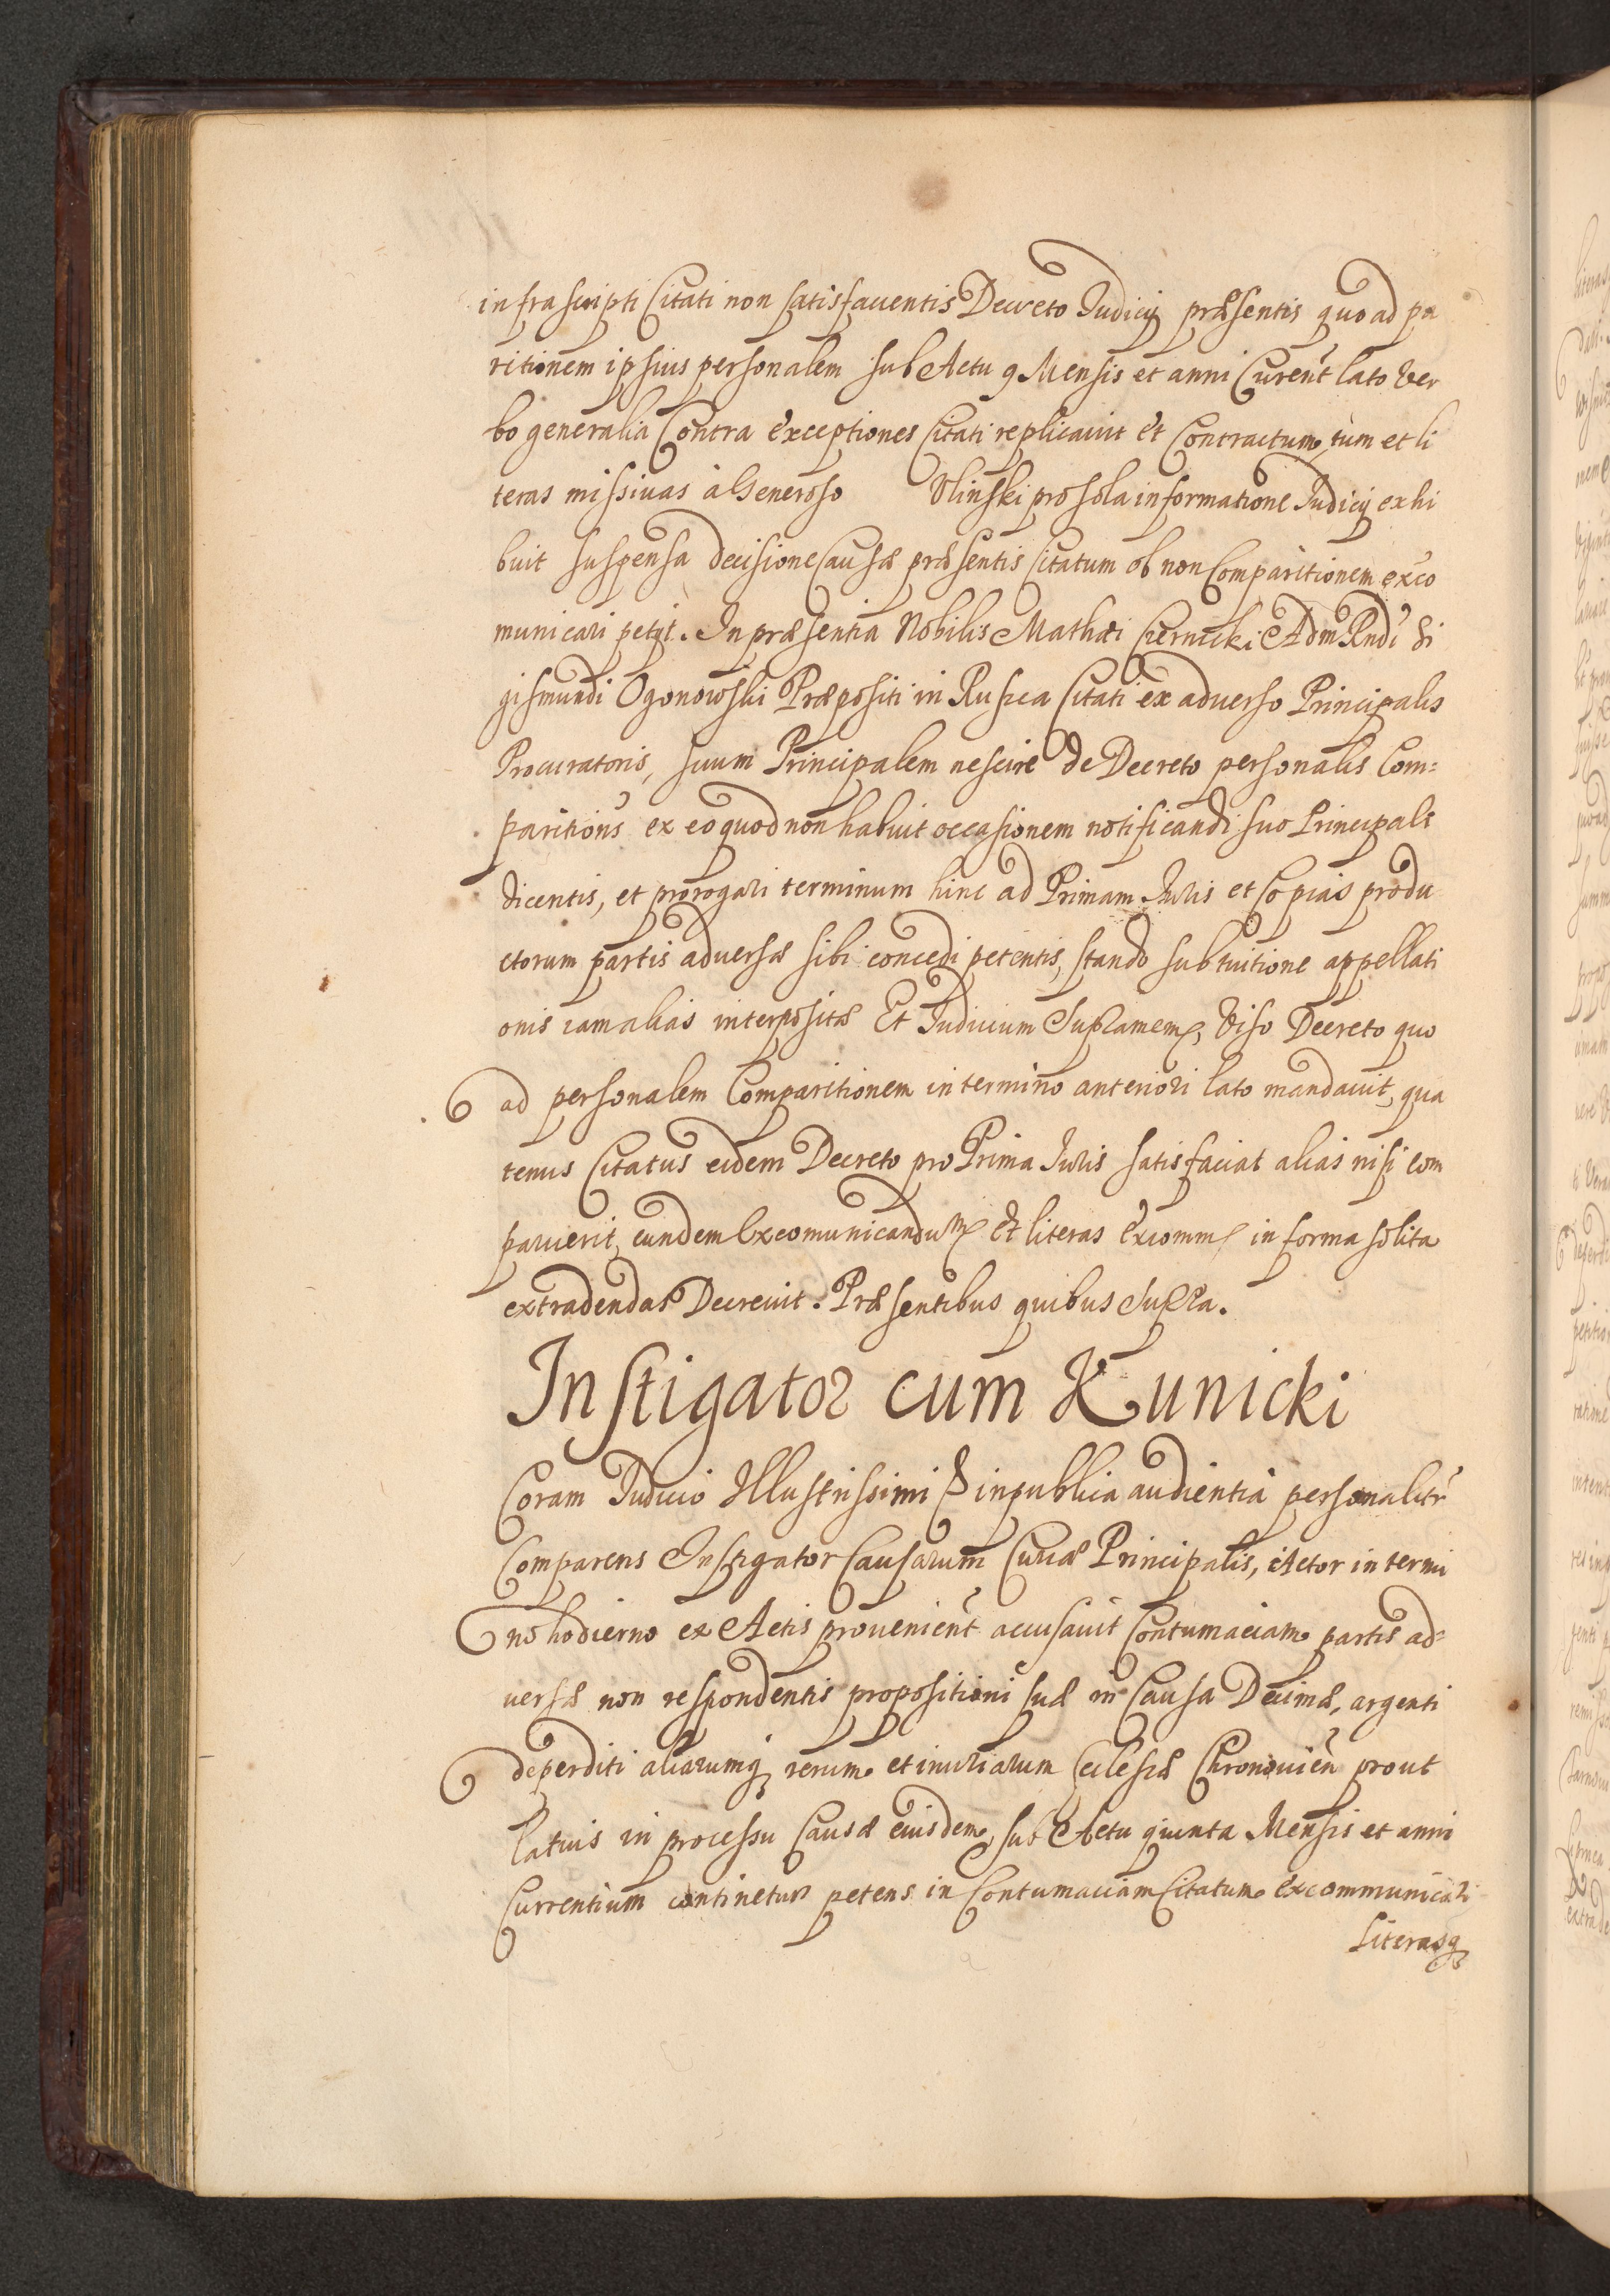 infrascripti Citati non satisfacientis Decreto Judicij præsentis quo ad pa
ritionem ipsius personalem sub Actu 9 Mensis et anni Curent lato Ver
bo generalia Contra exceptiones Citati replicavit et Contractum, tum et li
teras missivas à Generoso Vlinski pro sola informatione Judicij exhi
buit suspensa decisione Causæ præsentis Citatum ob non Comparitionem exco
municari petijt. In præsentia Nobilis Mathæi Czernicki Adm Rndi Si
gismundi Ogonowski Præpositi in Rusica Citati ex adverso Principalis
Procuratoris, suum Principalem nescire de Decreto personalis Com=
paritions ex eo quod non habuit occasionem notificandi suo Principali
dicentis, et prorogari terminum hinc ad Primam Juris et Copias produ
ctorum partis adversæ sibi concedi petentis, stando sub tuitione appellati
onis iam alias interpositæ Et Judicium Supramem, Viso Decreto quo
ad personalem Comparitionem in termino anteriori lato mandavit, qua
tenus Citatus eidem Decreto pro Prima Juris satisfaciat alias nisi com
paruerit, eundem Excomunicandum et literas excomm in forma solita
extradendas Decrevit. Præsentibus quibus Supra.
Instigator cum Kunicki
Coram Judicio Illustrissimi & in publica audientia personalitr
Comparens Instigator Causarum Curiæ Principalis, Actor in termi
no hodierno ex Actis provenient accusavit Contumaciam partis ad=
versæ non respondentis propositioni suæ in Causa Decimæ, argenti
deperditi aliarumq rerum et iniuriarum Ecclesiæ Chronovien prout
latius in processu Causæ eiusdem, sub Actu quinta Mensis et anni
Currentium continetur petens in Contumaciam Citatum excommunicari
Literasq